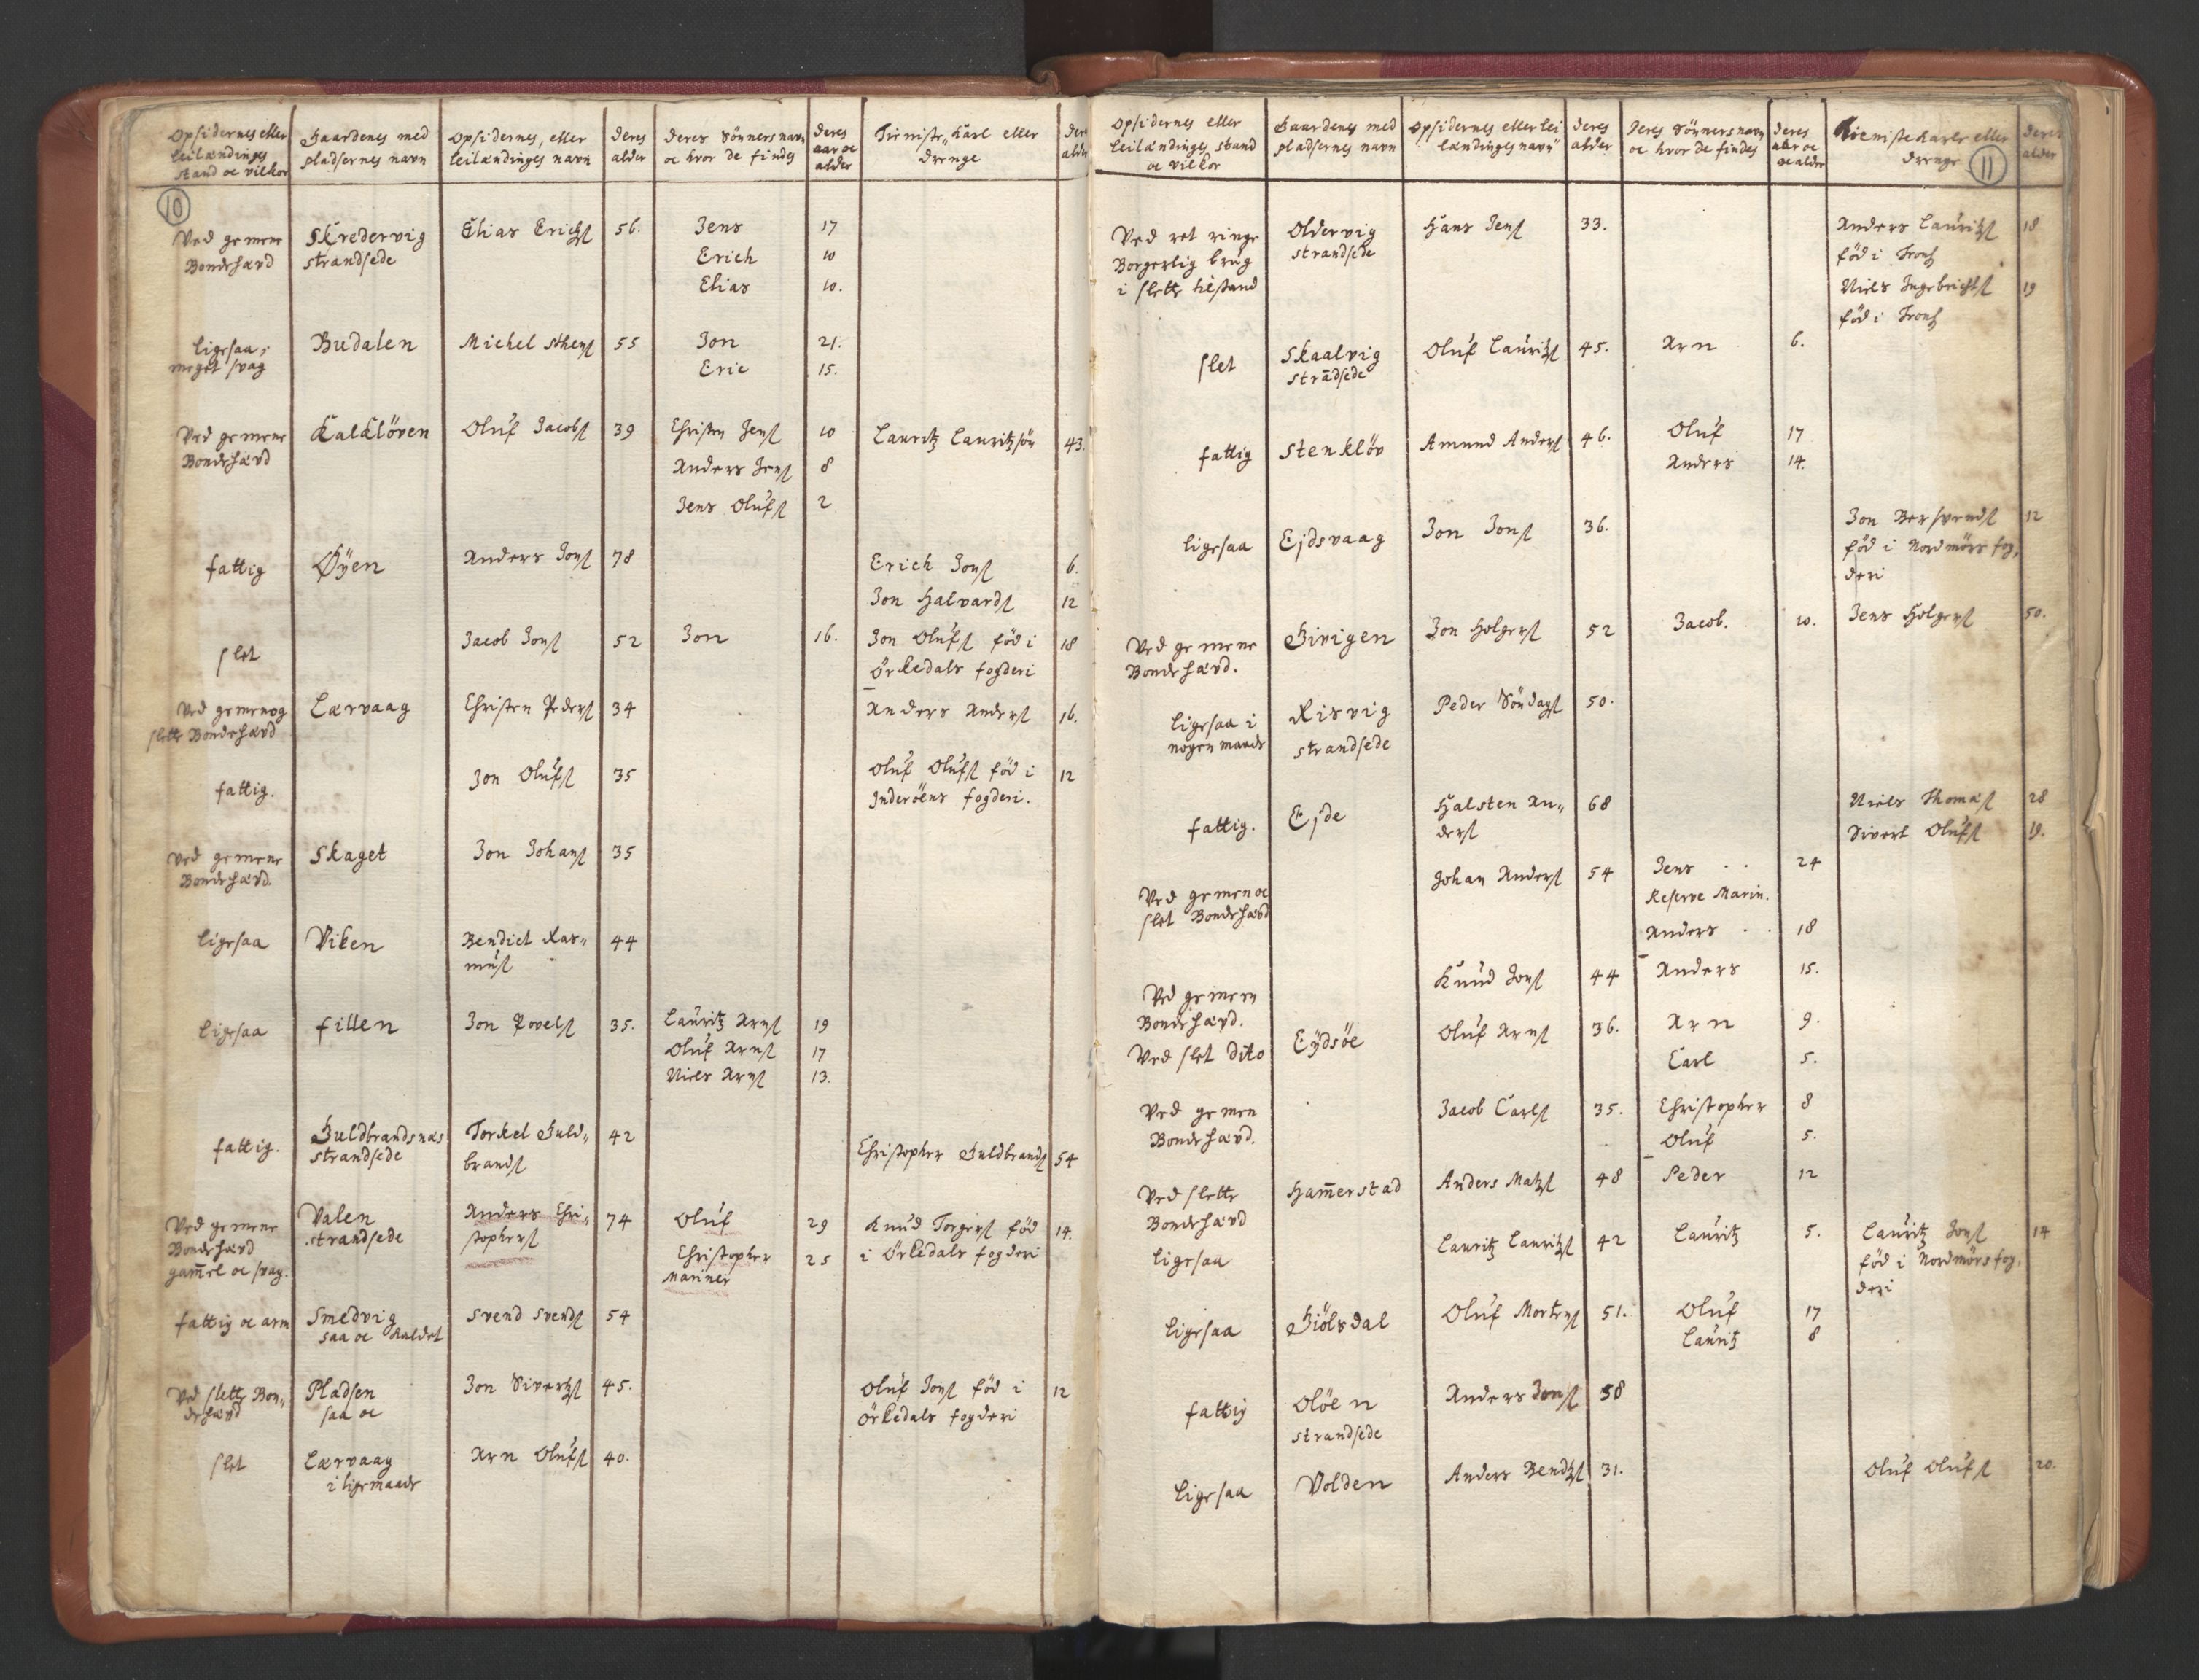 Opsidernes eller Leilændinges stand oc vilkor | Gaardenes med pladsernes navn | Opsidernes, eller Leilændinges navn | Deres alder | Deres Sönners navn oc hvor de findes | Deres aar oc alder | Tieniste Karl eller Drenge | Deres alder
10
Ved gemene Bondehævd | Skredervig strandsede | Elias Erichs: | 56. | Jens | 17
Erich | 10
Elias | 10.
Ligesaa, meget svag | Budalen | Michel Sthens: | 55 | Jon | 21.
Eric | 15.
Ved gemene Bondehævd | Kalklöven | Oluf Jacobs: | 39 | Christen Jens: | 10 | Lauritz Lauritzsön | 43.
Anders Jens: | 8
Jens Olufs: | 2
fattig | Øyen | Anders Jons: | 78 | Erich Jons: | 6.
Jon Halvards: | 12
slet | Jacob Jons: | 52 | Jon | 16. | Jon Olufs: föd i Örkedals fogderi | 18
Ved gemen og slette Bondehævd | Lærvaag | Christen Peders: | 34 | Anders Anders: | 16.
fattig. | Jon Olufs: | 35 | Oluf Olufs: föd i Inderöens fogderi. | 12
Ved gemene Bondehævd. | Skaget | Jon Johans: | 35
Ligesaa | Viken | Bendict Rasmus: | 44
Ligesaa | fillen | Jon Povels: | 35. | Lauritz Arns: | 19
Oluf Arns: | 17
Niels Arns: | 13.
fattig. | Guldbrandsnæs strandsede | Torkel Guldbrands: | 42 | Christopher Guldbrands: | 54
Ved gemene Bondehævd gam̄el oc svag. | Valen strandsede | Anders Christophers: | 74 | Oluf | 29 | Knud Torgers: föd i Örkedals fogderi | 14.
Christopher Mariner | 25
fattig oc arm | Smedvig saa oc kaldet | Svend Svends: | 54
Ved slette Bondehævd | Pladsen saa oc | Jon Siverts: | 45. | Oluf Jons: föd i Örkedals fogderi | 12
slet | Lærvaag i ligemaade | Arn Olufs: | 40.

Opsidernes eller Leilændinges stand oc vilkor | Gaardenes med pladsernes navn | Opsidernes eller Leilændinges navn | Deres alder | Deres Sönners navn oc hvor de findes | Deres aar oc alder | Tieniste Karle eller Drenge | Deres alder
11
Ved ret ringe Borgerlig brug i slette tilstand | Oldervig strandsede | Hans Jens: | 33. | Anders Lauritzs: föd i Tronh: | 18
Niels Ingebrichts: föd i Tronh: | 19
slet | Skaalvig strādsede | Oluf Lauritzs: | 45. | Arn | 6.
fattig | Stenklöv | Amund Anders: | 46. | Oluf | 17
Anders | 14.
Ligesaa | Ejdsvaag | Jon Jons: | 36. | Jon Bersvends: föd i Nordmörs fogderi | 12
Ved gemene Bondehævd. | Girigen | Jon Holgers: | 52 | Jacob. | 10. | Jens Holgers: | 50.
Ligesaa i nogen maade | Risvig strandsede | Peder Söndags: | 50.
fattig. | Ejde | Halsten Anders: | 68 | Niels Thomas: | 28
Sivert Olufs: | 19.
Ved gemen oc slet Bondehævd | Johan Anders: | 54 | Jens | 24
Reserve Marin.
Anders | 18
Ved gemen Bondehævd. | Knud Jons: | 44 | Anders | 15.
Ved slet Dito | Eÿdsöe | Oluf Arns: | 36. | Arn | 9.
Carl | 5.
Ved gemen Bondehævd. | Jacob Carls: | 35. | Christopher | 8
Oluf | 5.
Ved slette Bondehævd | Ham̄erstad | Anders Matzs: | 48 | Peder | 12
Ligesaa | Lauritz Lauritzs: | 42 | Lauritz | 5. | Lauritz Jons: föd i Nordmörs fogderi | 14
Ligesaa | Giölsdal | Oluf Mortens: | 51. | Oluf | 17
Lauritz | 8
fattig | Olöen strandsede | Anders Jons: | 58
Ligesaa | Volden | Anders Bendtzs: | 31. | Oluf Olufs: | 20.